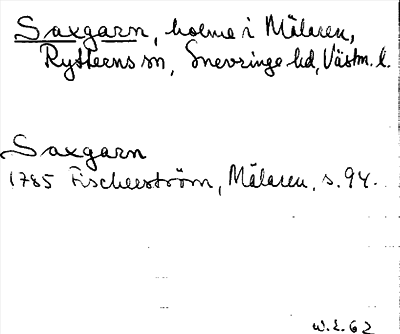 Saxgarn, holme i Mälaren,
Rytterns sn, Snevringe hd, Västm. l.
Saxgarn
1785 Fischerström, Mälaren, s. 94.
W.E. 62